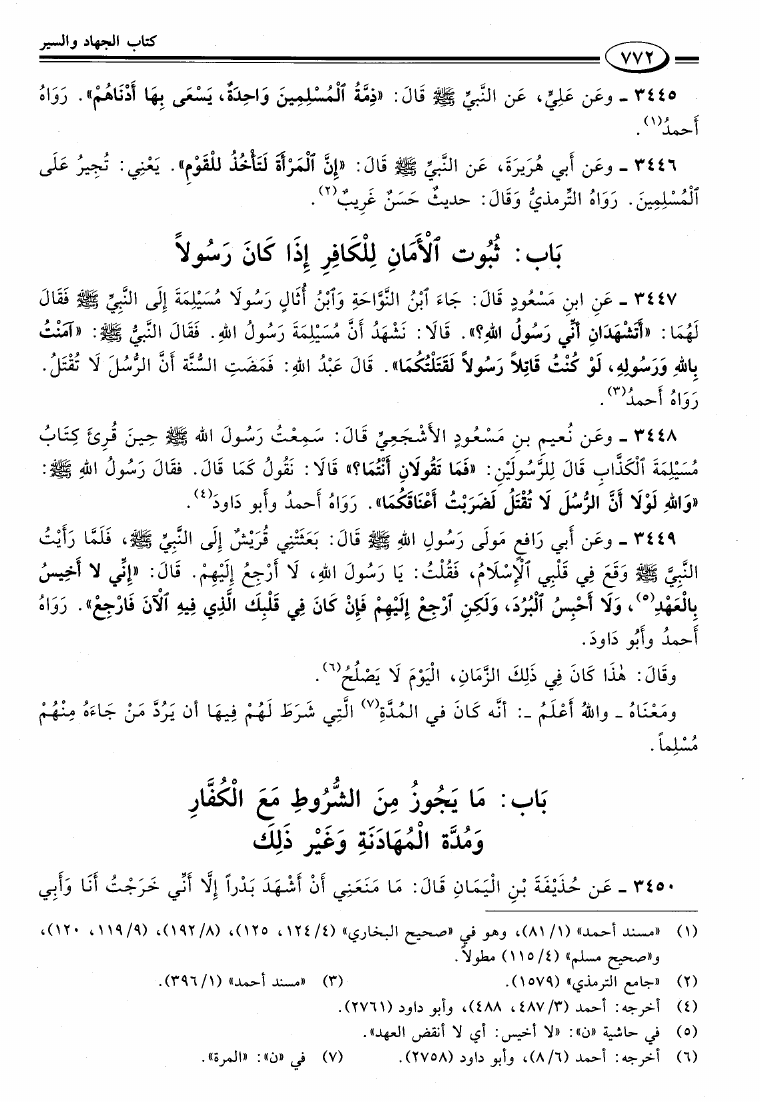 كتاب الجهاد والسير
٧٧٢
٣٤٤٥ ـ وعَن عَلِيٍّ، عَن النَّبِيِّ ﷺ قَالَ: «ذِمَّةُ ٱلْمُسْلِمِينَ وَاحِدَةٌ، يَسْعَى بِهَا أَدْنَاهُمْ». رَوَاهُ
أَحمدُ(١).
٣٤٤٦ ـ وعَن أَبي هُرَيرَةَ، عَن النَّبِيِّ ﷺ قَالَ: «إِنَّ ٱلْمَرْأَةَ لَتَأْخُذُ لِلْقَوْمِ». يَعْنِي: تُجِيرُ عَلَى
ٱلْمُسْلِمِينَ. رَوَاهُ التِّرمذيُّ وَقَالَ: حديثٌ حَسَنٌ غَرِيبٌ(٢).
بَاب: ثُبُوت ٱلْأَمَانِ لِلْكَافِرِ إِذَا كَانَ رَسُولاً
٣٤٤٧ ـ عَنِ ابنِ مَسْعُودٍ قَالَ: جَاءَ ٱبْنُ النَّوَّاحَةِ وَٱبْنُ أُثَالٍ رَسُولَا مُسَيْلِمَةَ إِلَى النَّبِيِّ ﷺ فَقَالَ
لَهُمَا: «أَتَشْهَدَانِ أَنِّي رَسُولُ اللهِ؟». قَالَا: نَشْهَدُ أَنَّ مُسَيْلِمَةَ رَسُولُ اللهِ. فَقَالَ النَّبِيُّ ﷺ: «آمَنْتُ
بِاللهِ وَرَسُولِهِ، لَوْ كُنْتُ قَاتِلاً رَسُولاً لَقَتَلْتُكُمَا». قَالَ عَبْدُ اللهِ: فَمَضَتِ السُّنَّة أَنَّ الرُّسُلَ لَا تُقْتَلُ.
رَوَاهُ أَحمدُ(٣).
٣٤٤٨ ـ وعَن نُعيمِ بنِ مَسْعُودٍ الأَشْجَعِيِّ قَالَ: سَمِعْتُ رَسُولَ الله ﷺ حِينَ قُرِئَ كِتَابُ
مُسَيْلِمَةَ ٱلْكَذَّابِ قَالَ لِلرَّسُولَيْنِ: «فَمَا تَقُولَانِ أَنْتُمَا؟» قَالَا: نَقُولُ كَمَا قَالَ. فقَالَ رَسُولُ اللهِ ﷺ:
«وَاللهِ لَوْلَا أَنَّ الرُّسُلَ لَا تُقْتَلُ لَضَرَبْتُ أَعْنَاقَكُمَا». رَوَاهُ أَحمدُ وأَبو دَاودَ(٤).
٣٤٤٩ ـ وعَن أَبي رَافعٍ مَولَى رَسُولِ اللهِ ﷺ قَالَ: بَعَثَتْنِي قُرَيْشٌ إِلَى النَّبِيِّ ﷺ، فَلَمَّا رَأَيْتُ
النَّبِيَّ ﷺ وَقَعَ فِي قَلْبِي ٱلْإِسْلَامُ، فَقُلْتُ: يَا رَسُولَ اللهِ، لَا أَرْجِعُ إِلَيْهِمْ. قَالَ: «إِنِّي لا أَخِيسُ
بِالْعَهْدِ(٥)، وَلَا أَحْبِسُ ٱلْبُرُدَ، وَلَكِنِ ٱرْجِعْ إِلَيْهِمْ فَإِنْ كَانَ فِي قَلْبِكَ الَّذِي فِيهِ ٱلْآنَ فَارْجِعْ». رَوَاهُ
أَحمدُ وأَبُو دَاودَ.
وقَالَ: هٰذَا كَانَ فِي ذَلِكَ الزَّمَانِ، الْيَوْمَ لَا يَصْلُحُ(٦).
ومَعْنَاهُ ـ واللهُ أَعْلَمُ ـ: أَنَّه كَانَ في المُدَّةِ(٧) الَّتِي شَرَطَ لَهُمْ فِيهَا أَن يَرُدَّ مَنْ جَاءَهُ مِنْهُمْ
مُسْلِماً.
بَاب: مَا يَجُوزُ مِنَ الشُّرُوطِ مَعَ الْكُفَّارِ
وَمُدَّة الْمُهَادَنَةِ وَغَيْر ذَلِكَ
٣٤٥٠ ـ عَن حُذَيْفَةَ بْنِ الْيَمَانِ قَالَ: مَا مَنَعَنِي أَنْ أَشْهَدَ بَدْراً إِلَّا أَنِّي خَرَجْتُ أَنَا وَأَبِي
(١) «مسند أحمد» (٨١/١)، وهو في «صحيح البخاري» (١٢٤/٤، ١٢٥)، (١٩٢/٨)، (١١٩/٩، ١٢٠)،
و«صحيح مسلم» (١١٥/٤) مطولاً.
(٢) «جامع الترمذي» (١٥٧٩). (٣) «مسند أحمد» (٣٩٦/١).
(٤) أخرجه: أحمد (٤٨٧/٣، ٤٨٨)، وأبو داود (٢٧٦١).
(٥) في حاشية «ن»: «لا أخيس: أي لا أنقض العهد».
(٦) أخرجه: أحمد (٨/٦)، وأبو داود (٢٧٥٨). (٧) في «ن»: «المرة».